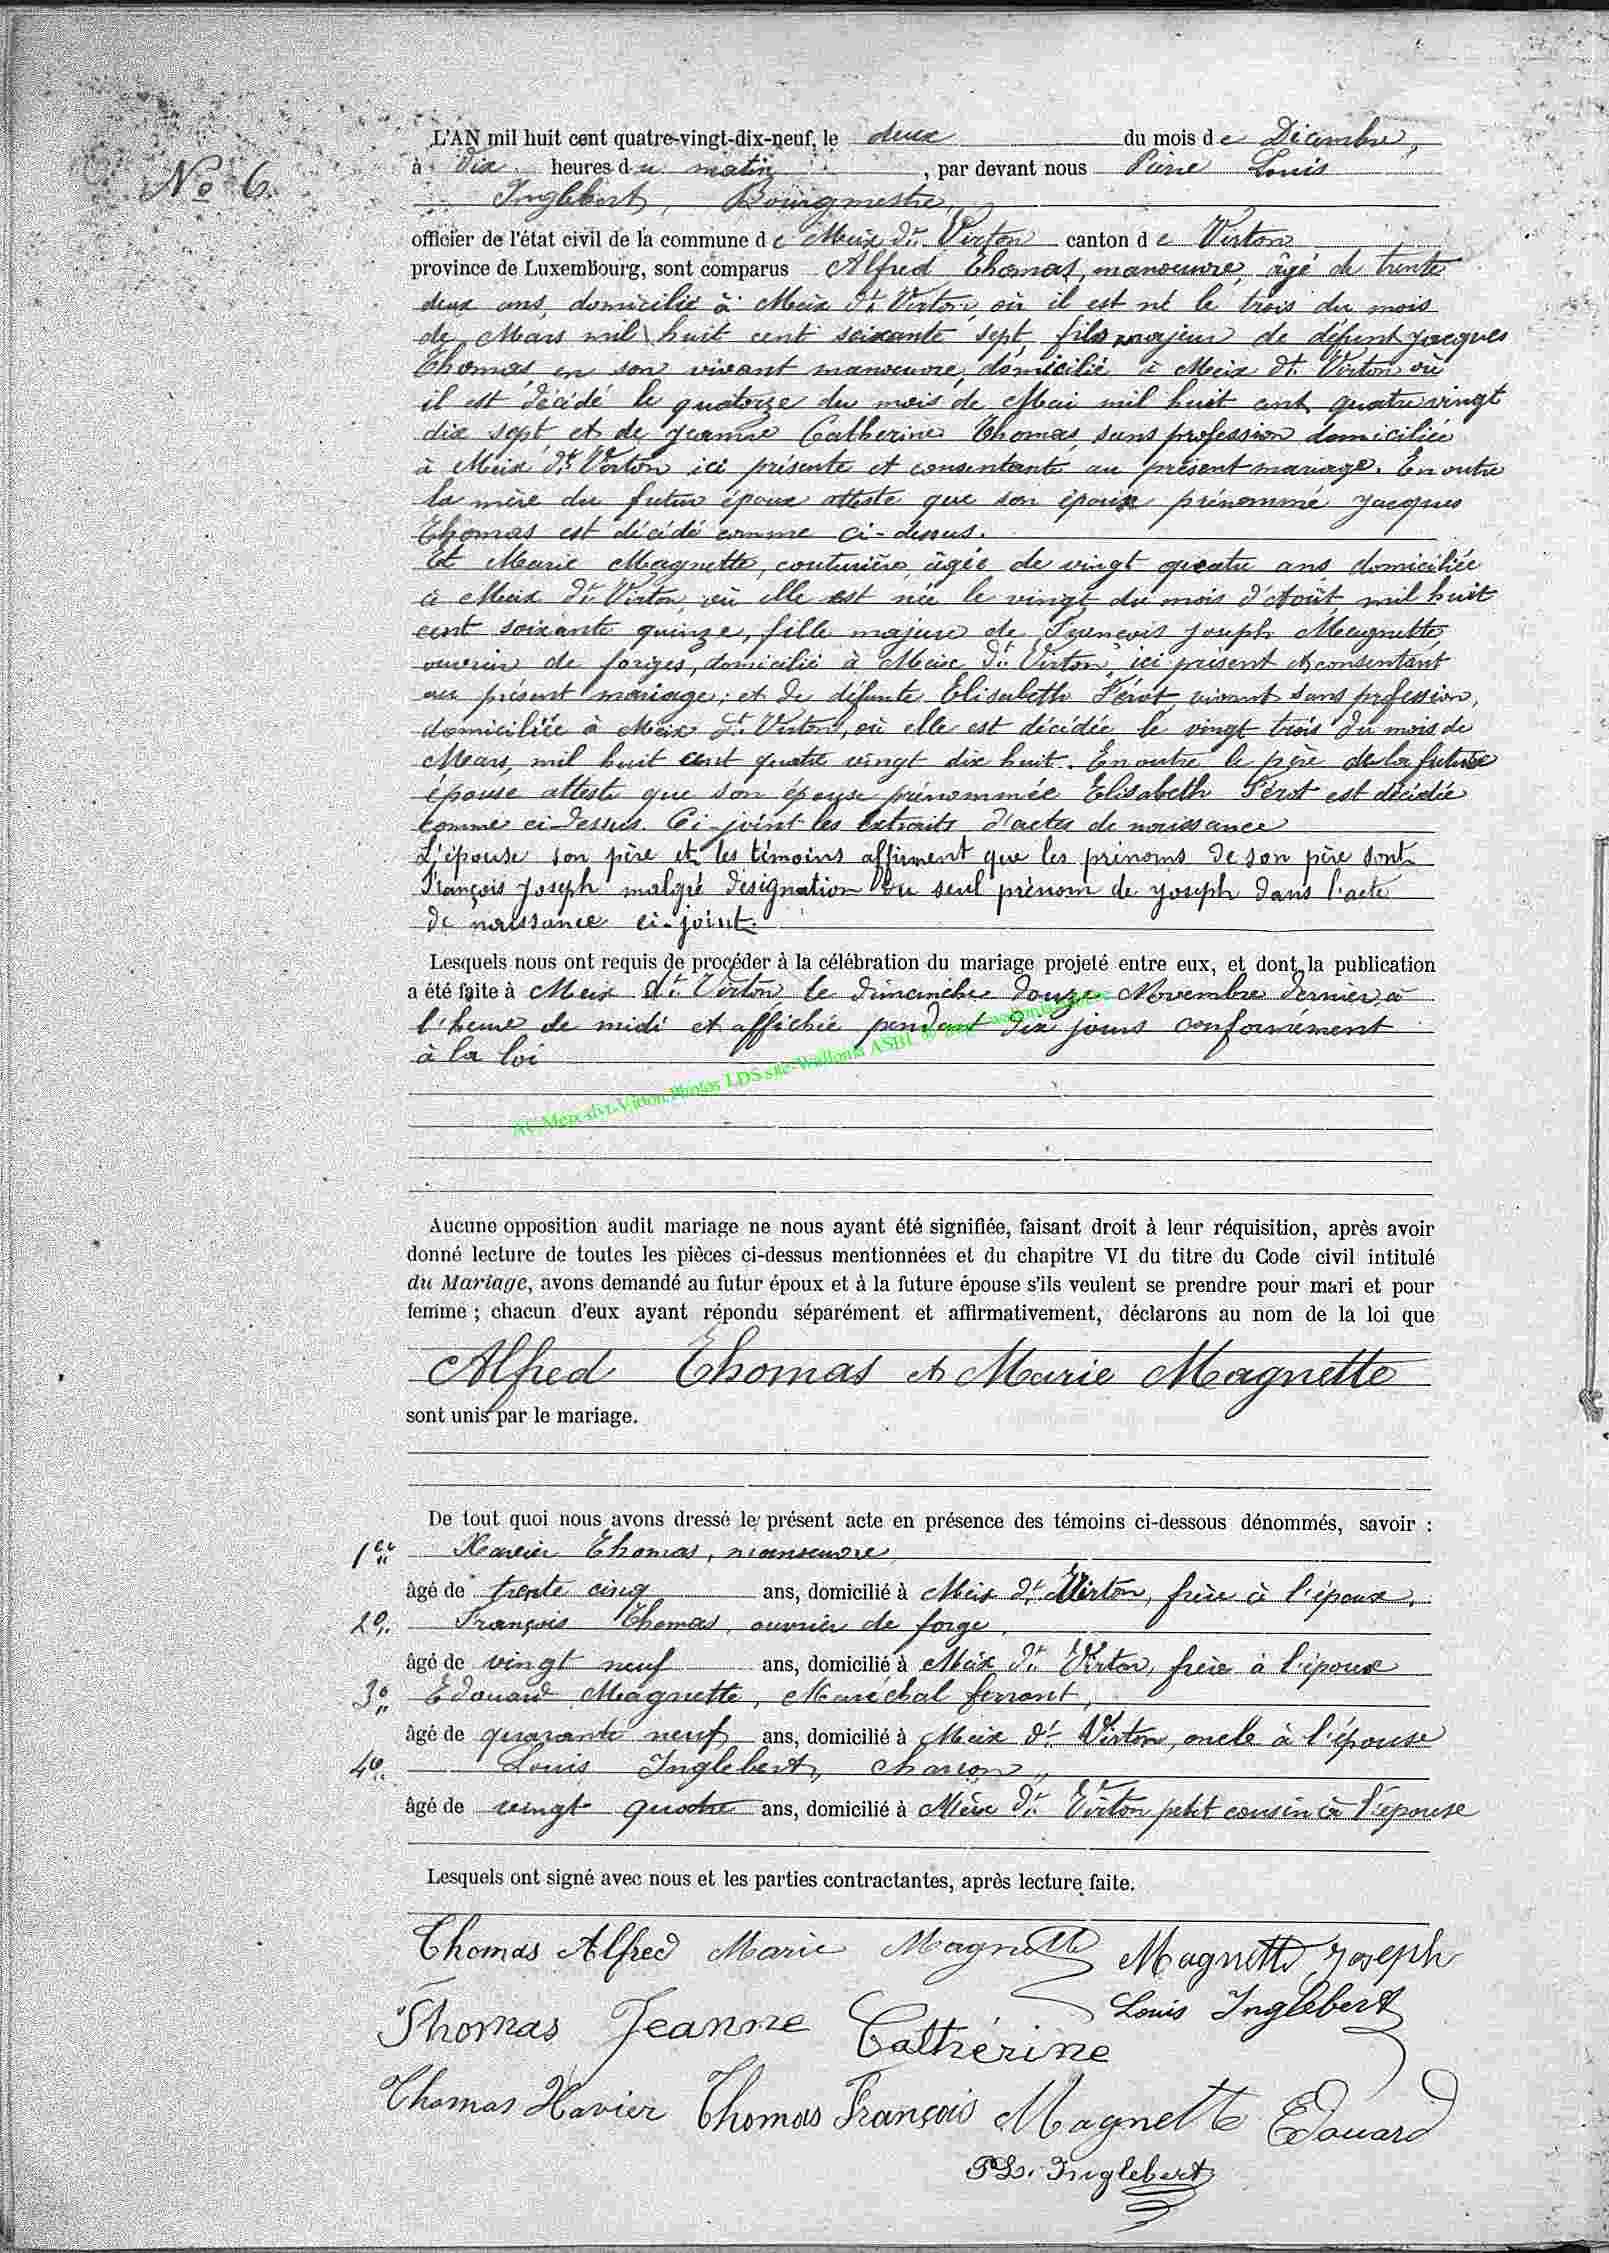 No 6.
L'AN mil huit cent quatre-vingt-dix-neuf, le deux du mois de Décembre,
à dix heures du matin, par devant nous Pierre Louis
Inglebert, Bourgmestre,
officier de l'état civil de la commune de Meix dt Virton canton de Virton
province de Luxembourg, sont comparus Alfred Thomas, manoeuvre, âgé de trente
deux ans, domicilié à Meix dt Virton, où il est né le trois du mois
de Mars mil huit cent soixante sept, fils majeur de défunt Jacques
Thomas, en son vivant manoeuvre, domicilié à Meix dt Virton où
il est décédé le quatorze du mois de Mai mil huit cent quatre vingt
dix sept, et de Jeanne Catherine Thomas, sans profession domiciliée
à Meix dt Virton ici présente et consentante au présent mariage. En outre
la mère du futur époux atteste que son époux prénommé Jacques
Thomas est décédé comme ci-dessus.
Et Marie Magnette, couturière, âgée de vingt quatre ans domiciliée
à Meix dt Virton, où elle est née le vingt du mois d'Août mil huit
cent soixante quinze, fille majeure de François Joseph Magnette,
ouvrier de forges, domicilié à Meix dt Virton, ici présent et consentant
au présent mariage; et de défunte Elisabeth Pérot, vivant sans profession,
domiciliée à Meix dt Virton, où elle est décédée le vingt trois du mois de
Mars, mil huit cent quatre vingt dix huit. En outre le père de la future
épouse atteste que son épouse prénommée Elisabeth Pérot est décédée
comme ci-dessus. Ci-joint les extraits d'actes de naissance
L'épouse son père et les témoins affirment que les prénoms de son père sont
François Joseph malgré désignation du seul prénom de Joseph dans l'acte
de naissance ci-joint.
Lesquels nous ont requis de procéder à la célébration du mariage projeté entre eux, et dont la publication
a été faite à Meix dt Virton le dimanche douze Novembre dernier à
l'heure de midi et affichée pendant dix jours conformément
à la loi
Aucune opposition audit mariage ne nous ayant été signifiée, faisant droit à leur réquisition, après avoir
donné lecture de toutes les pièces ci-dessus mentionnées et du chapitre VI du titre du Code civil intitulé
du Mariage, avons demandé au futur époux et à la future épouse s'ils veulent se prendre pour mari et pour
femme ; chacun d'eux ayant répondu séparément et affirmativement, déclarons au nom de la loi que
Alfred Thomas et Marie Magnette
sont unis par le mariage.
De tout quoi nous avons dressé le présent acte en présence des témoins ci-dessous dénommés, savoir :
1er Xavier Thomas, manoeuvre
âgé de trente cinq ans, domicilié à Meix dt Virton, frère à l'époux.
2o François Thomas, ouvrier de forge,
âgé de vingt neuf ans, domicilié à Meix dt Virton, frère à l'époux
3o Edouard Magnette, Maréchal ferrant,
âgé de quarante neuf ans, domicilié à Meix dt Virton, oncle à l'épouse
4o Louis Inglebert, charron,
âgé de vingt quatre ans, domicilié à Meix dt Virton petit cousin à l'épouse
Lesquels ont signé avec nous et les parties contractantes, après lecture faite.
Thomas Alfred Marie Magnette Magnette Joseph
Louis Inglebert
Thomas Jeanne Cathérine
Thomas Xavier Thomas François Magnette Edouard
PL. Inglebert